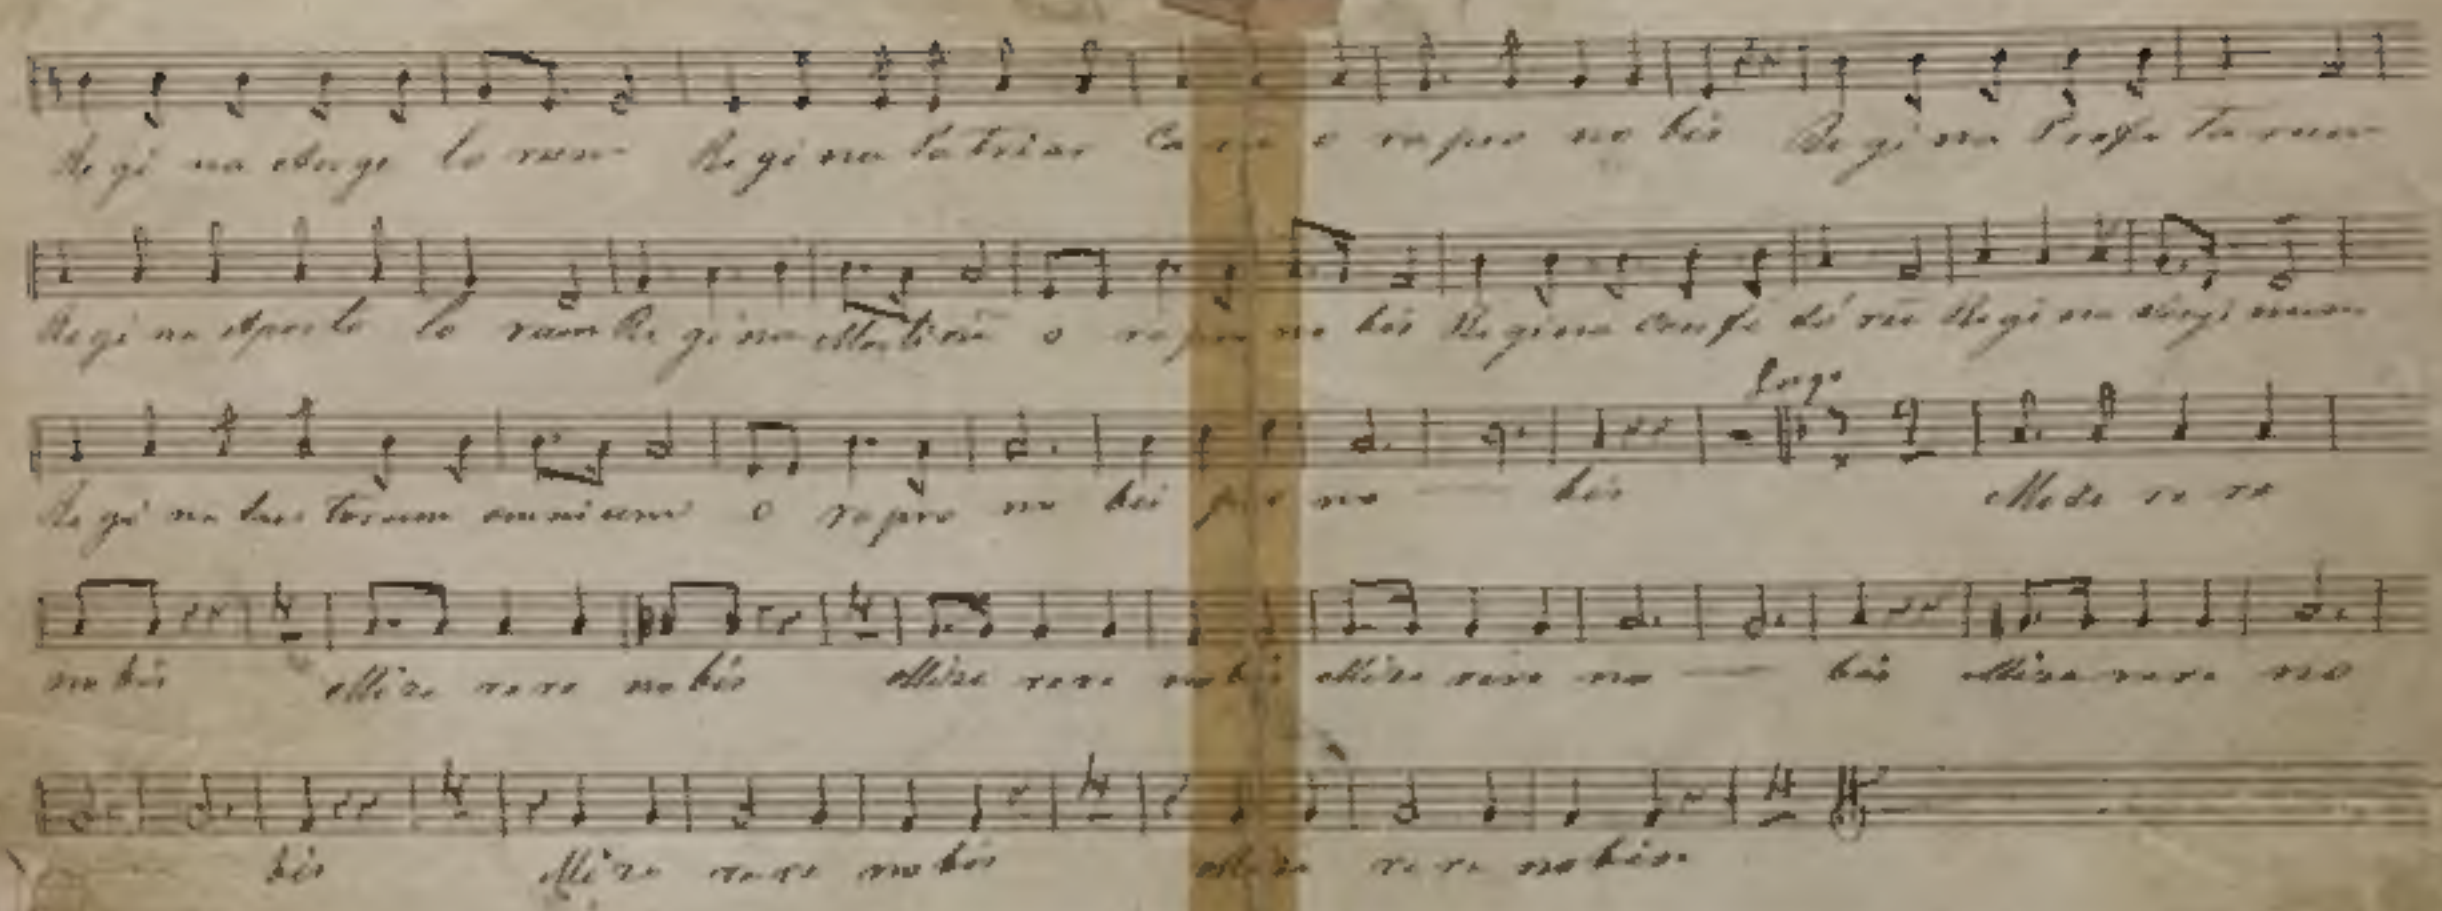 Re gi na Ange lo rum Re gi na Patriar Ca rū o ra pro no bis Re gi na Profe ta rum
Re gi na Aposto lo rum Re gi na Martirū o ra pro no bis Re gina Confe só rū Re gi na Virgi num
Re gi na San torum omnium o ra pro no bis pro no bis
Largo
Mise re re
no bis Mise re re no bis Mise rere no bis Mise rere no bis Mise rere no
bis Mise rere no bis Mise re re no bis